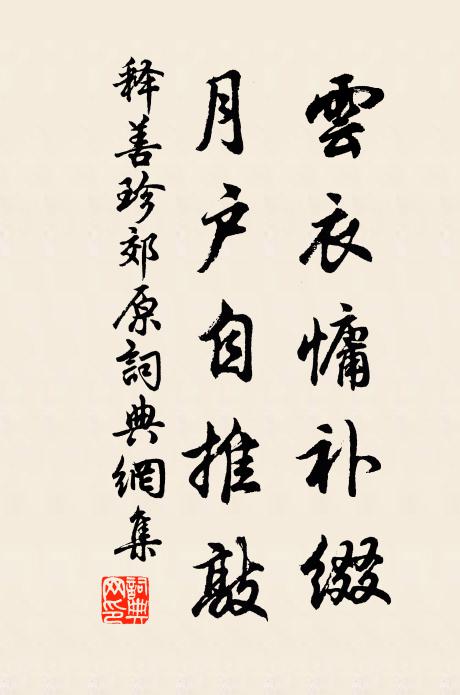 雲衣慵补缀
月户自推敲
释善珍郊原詞典網集
詞典网印